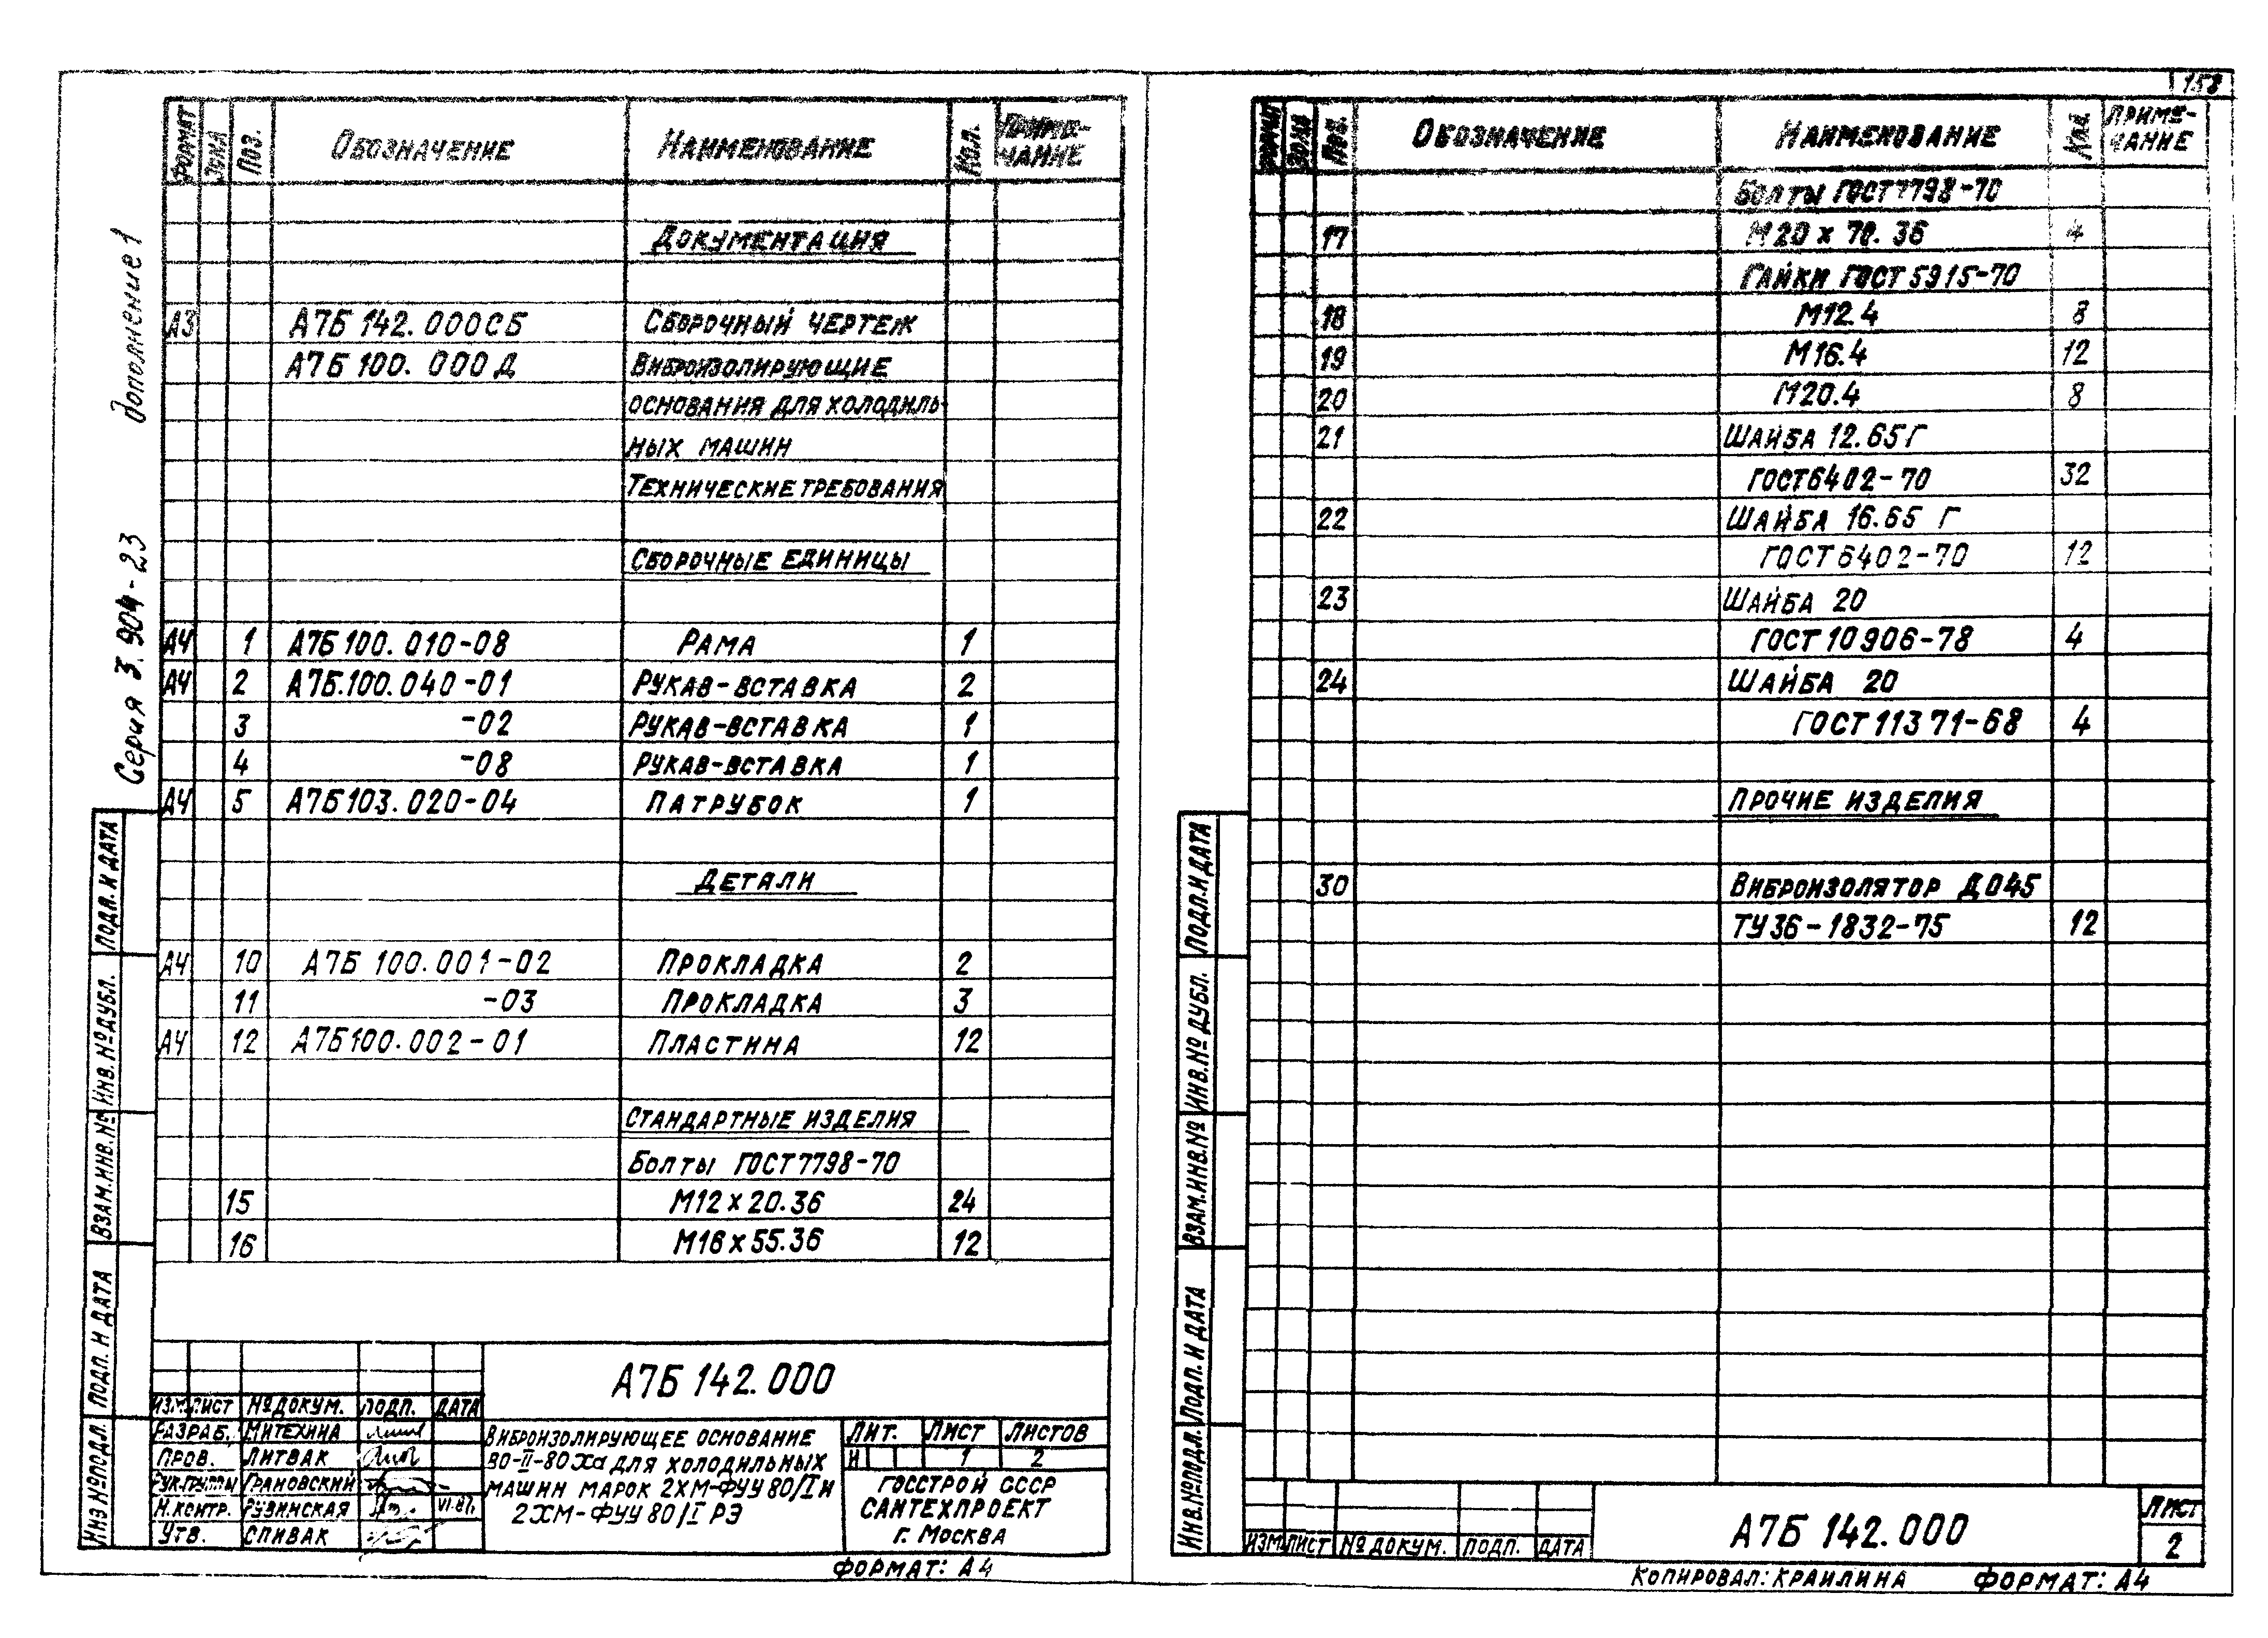 158
Серия 3.904-23 дополнение 1
ФОРМАТ ЗОНА ПОЗ. ОБОЗНАЧЕНИЕ НАИМЕНОВАНИЕ КОЛ. ПРИМЕ-
ЧАНИЕ
ДОКУМЕНТАЦИЯ
А3 А7Б 142.000СБ СБОРОЧНЫЙ ЧЕРТЕЖ
А7Б 100.000Д ВИБРОИЗОЛИРУЮЩИЕ
ОСНОВАНИЯ ДЛЯ ХОЛОДИЛЬ-
НЫХ МАШИН
ТЕХНИЧЕСКИЕ ТРЕБОВАНИЯ
СБОРОЧНЫЕ ЕДИНИЦЫ
А4 1 А7Б 100.010-08 РАМА 1
А4 2 А7Б.100.040-01 РУКАВ-ВСТАВКА 2
3 -02 РУКАВ-ВСТАВКА 1
4 -08 РУКАВ-ВСТАВКА 1
А4 5 А7Б 103.020-04 ПАТРУБОК 1
ДЕТАЛИ
А4 10 А7Б 100.001-02 ПРОКЛАДКА 2
11 -03 ПРОКЛАДКА 3
А4 12 А7Б100.002-01 ПЛАСТИНА 12
СТАНДАРТНЫЕ ИЗДЕЛИЯ
БОЛТЫ ГОСТ7798-70
15 М12 х 20.36 24
16 М16 х 55.36 12
ПОДП. И ДАТА
ИНВ.№ДУБЛ.
ВЗАМ.ИНВ.№
ПОДП. И ДАТА
ИНВ №ПОДЛ.
А7Б 142.000
ИЗМ. ЛИСТ № ДОКУМ. ПОДП. ДАТА
РАЗРАБ. МИТЕХИНА
ПРОВ. ЛИТВАК
РУК.ГРУППЫ ГРАНОВСКИЙ
Н.КОНТР. РУЗИНСКАЯ VI.87г.
УТВ. СПИВАК
ВИБРОИЗОЛИРУЮЩЕЕ ОСНОВАНИЕ
ВО-II-80Ха ДЛЯ ХОЛОДИЛЬНЫХ
МАШИН МАРОК 2ХМ-ФУУ 80/I И
2ХМ-ФУУ 80/I РЭ
ЛИТ. ЛИСТ ЛИСТОВ
И 1 2
ГОССТРОЙ СССР
САНТЕХПРОЕКТ
Г. МОСКВА
ФОРМАТ: А4
ФОРМАТ ЗОНА ПОЗ. ОБОЗНАЧЕНИЕ НАИМЕНОВАНИЕ КОЛ. ПРИМЕ-
ЧАНИЕ
БОЛТЫ ГОСТ7798-70
17 М20 х 70.36 4
ГАЙКИ ГОСТ 5915-70
18 М12.4 8
19 М16.4 12
20 М20.4 8
21 ШАЙБА 12.65Г
ГОСТ6402-70 32
22 ШАЙБА 16.65 Г
ГОСТ6402-70 12
23 ШАЙБА 20
ГОСТ 10906-78 4
24 ШАЙБА 20
ГОСТ 11371-68 4
ПРОЧИЕ ИЗДЕЛИЯ
30 ВИБРОИЗОЛЯТОР ДО45
ТУ36-1832-75 12
ПОДП. И ДАТА
ИНВ.№ ДУБЛ.
ВЗАМ.ИНВ.№
ПОДП. И ДАТА
ИНВ.№ПОДЛ.
ИЗМ ЛИСТ № ДОКУМ. ПОДП. ДАТА
А7Б 142.000
ЛИСТ
2
КОПИРОВАЛ: КРАИЛИНА ФОРМАТ: А4